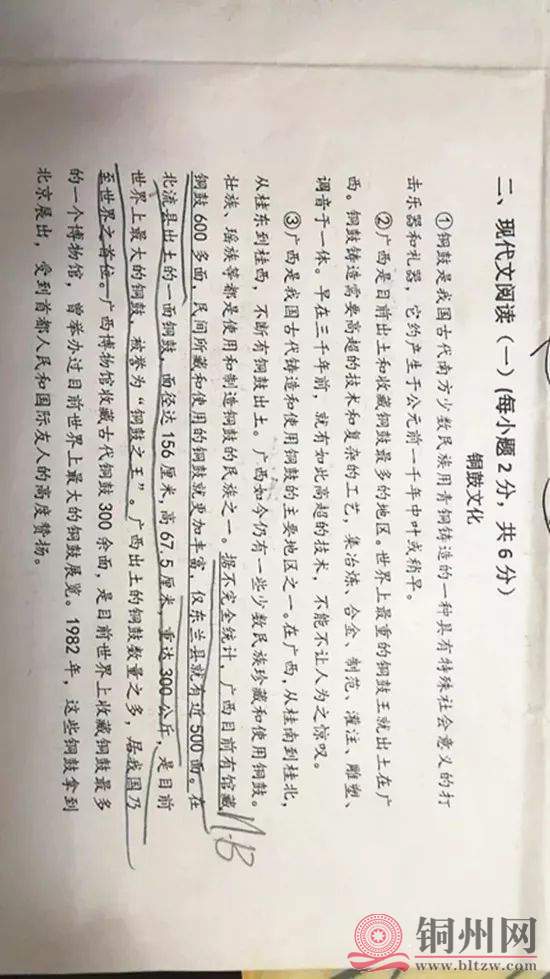 二、现代文阅读（一）(每小题2分，共6分)
铜鼓文化
①铜鼓是我国古代南方少数民族用青铜铸造的一种具有特殊社会意义的打
击乐器和礼器，它约产生于公元前一千年中叶或稍早。
②广西是目前出土和收藏铜鼓最多的地区。世界上最重的铜鼓王就出土在广
西。铜鼓铸造需要高超的技术和复杂的工艺，集冶炼、合金、制范、灌注、雕塑、
调音于一体。早在三千年前，就有如此高超的技术，不能不让人为之惊叹。
③广西是我国古代铸造和使用铜鼓的主要地区之一。在广西，从桂南到桂北，
从桂东到桂西，不断有铜鼓出土。广西如今仍有一些少数民族珍藏和使用铜鼓。
壮族、瑶族等都是使用和制造铜鼓的民族之一。据不完全统计，广西目前有馆藏
铜鼓600多面，民间所藏和使用的铜鼓就更加丰富，仅东兰县就有近500面。在
北流县出土的一面铜鼓，面径达156厘米，高67.5厘米，重达300公斤，是目前
世界上最大的铜鼓，被誉为“铜鼓之王”。广西出土的铜鼓数量之多，居我国乃
至世界之首位。广西博物馆收藏古代铜鼓300余面，是目前世界上收藏铜鼓最多
的一个博物馆，曾举办过目前世界上最大的铜鼓展览。1982年，这些铜鼓拿到
北京展出，受到首都人民和国际友人的高度赞扬。
铜州网
www.bltzw.com